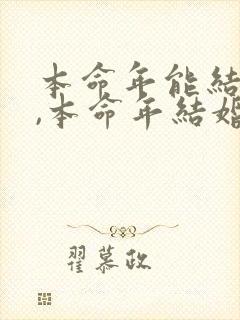 本命年能結
,本命年結婚
翟慕政